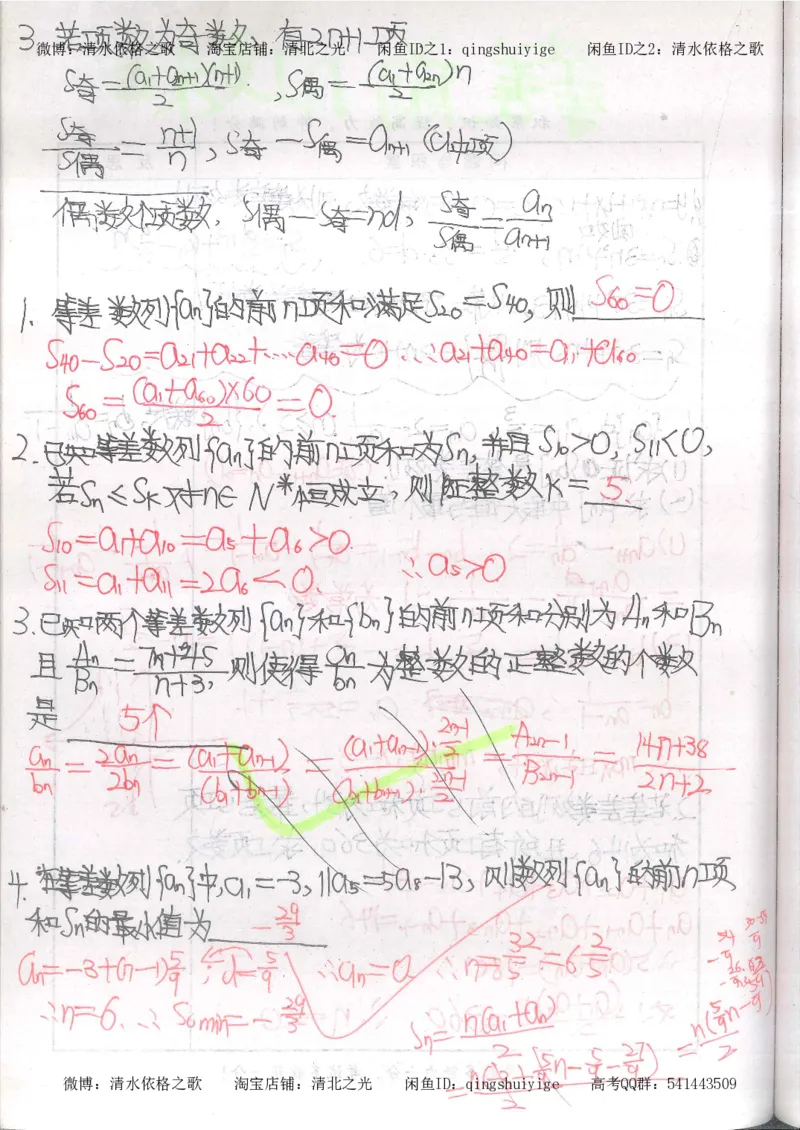 3. 若项数为奇数, 有2n+1项
微博: 清水依格之歌 淘宝店铺: 清北之光 闲鱼ID之1: qingshuiyige 闲鱼ID之2: 清水依格之歌
S奇=(a₁+a₂ₙ₊₁)(n+1)/2, S偶=(a₁+a₂ₙ)n/2
S奇/S偶=n+1/n, S奇-S偶=aₙ₊₁(a中项)
偶数个项数, S偶-S奇=nd, S奇/S偶=aₙ/aₙ₊₁
1. 等差数列{aₙ}的前n项和满足S₂₀=S₄₀, 则 S₆₀=0
S₄₀-S₂₀=a₂₁+a₂₂+……a₄₀=0 ∴a₂₁+a₄₀=a₁+a₆₀
S₆₀=(a₁+a₆₀)×60/2=0.
2. 已知等差数列{aₙ}的前n项和为Sₙ, 并且S₁₀>0, S₁₁<0,
若Sₙ≤Sₖ对n∈N*恒成立, 则正整数k= 5.
S₁₀=a₁+a₁₀=a₅+a₆>0.
S₁₁=a₁+a₁₁=2a₆<0. ∴a₅>0
3. 已知两个等差数列{aₙ}和{bₙ}的前n项和分别为Aₙ和Bₙ
且Aₙ/Bₙ=7n+45/n+3, 则使得aₙ/bₙ为整数的正整数的个数
是 5个
aₙ/bₙ=2aₙ/2bₙ=(a₁+aₙ₋₁)/(b₁+bₙ₋₁)=(a₁+aₙ₋₁)·2n-1/2/(b₁+bₙ₋₁)·2n-1/2=A₂ₙ₋₁/B₂ₙ₋₁=14n+38/2n+2
4. 在等差数列{aₙ}中, a₁=-3, 11a₅=5a₈-13, 则数列{aₙ}的前n项
和Sₙ的最小值为 -29/3
aₙ=-3+(n-1)5/9 ∵d=5/9 ∴aₙ=0 ∴n=32/5=6 2/5
∴n=6. ∴S₆min=-29/3
Sₙ=n(a₁+aₙ)/2
微博: 清水依格之歌 淘宝店铺: 清北之光 闲鱼ID: qingshuiyige 高考QQ群: 541443509